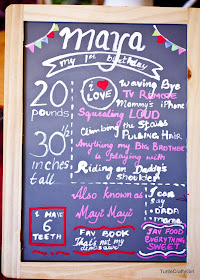 maya
my 1st birthday
20 pounds
30 1/2 inches tall
I LOVE
Waving Bye
TV REMOTE
Mommy's iPhone
Squealing LOUD
Climbing the Stairs
Pulling Hair
Anything my Big Brother
is playing with
Riding on Daddy's
shoulder
Also known as
Mayi Mayi
I can
say
DADA
mama
I HAVE
6
TEETH
FAV BOOK
That's not my
FAV FOOD
EVERYTHING
SWEET
TurtleCraftyGirl